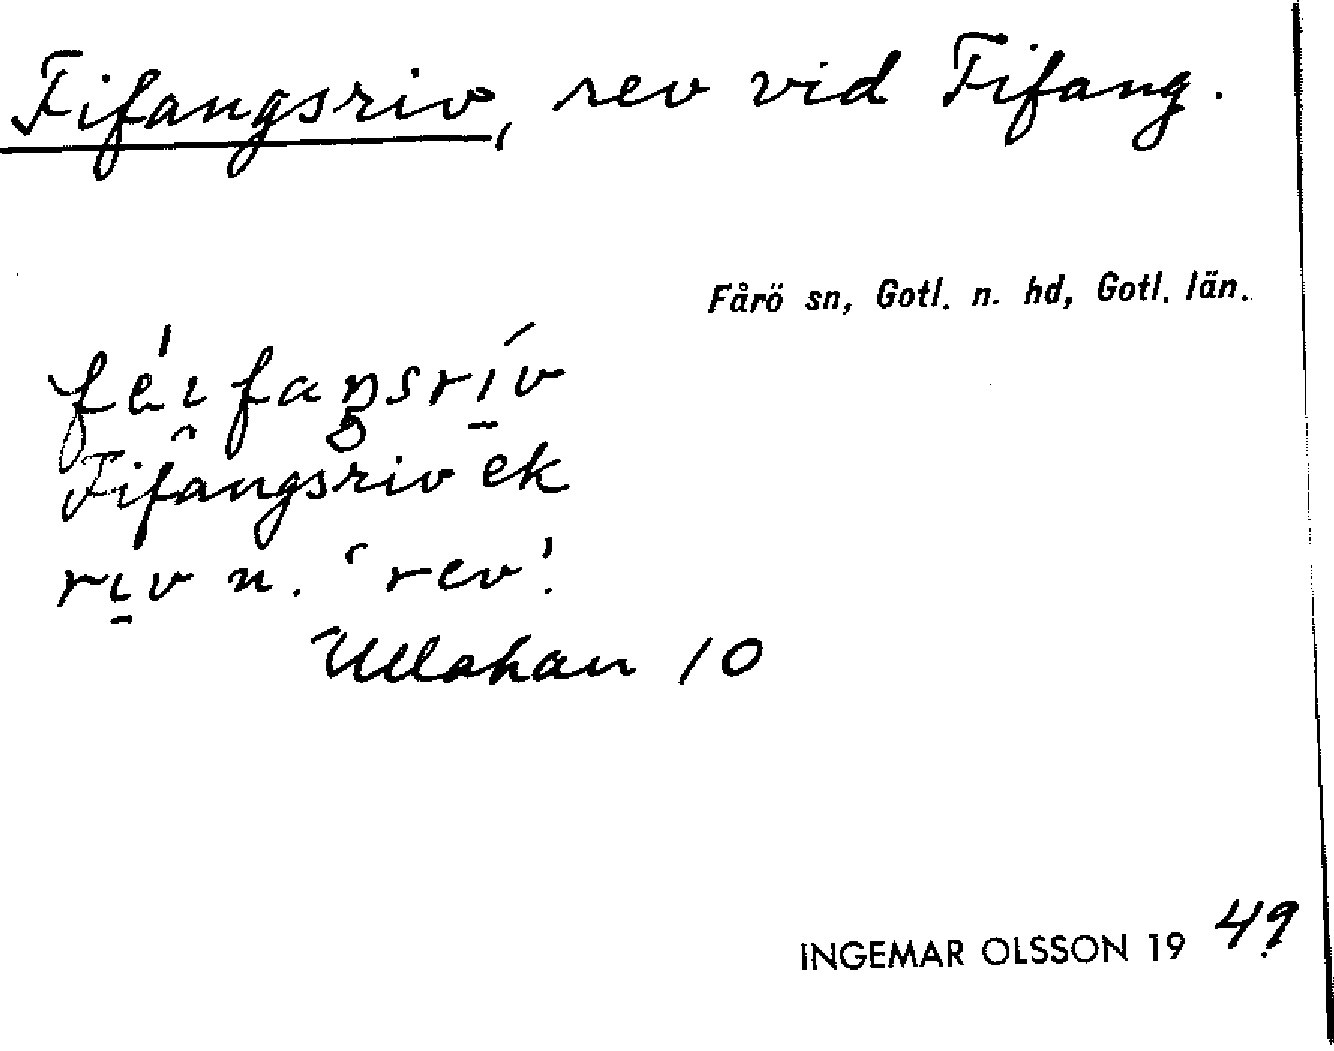 Fifangsriv, rev vid Fifang.
Fårö sn, Gotl. n. hd, Gotl. län.
féi̯faŋsrív
Fifangsriv ek
rı̱v n. 'rev'.
Ullahau 10
INGEMAR OLSSON 1949.